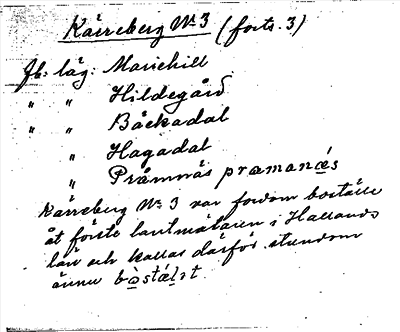 Kärreberg No 3 (forts. 3)
Jb: läg: Mariehill
" " Hildegård
" " Bäckadal
" Hagadal
" Pråmnäs pramanæs
Kärreberg No 3 var fordom boställe
åt förste lantmätaren i Hallands
län och kallas därför stundom
ännu bòstæ̀let